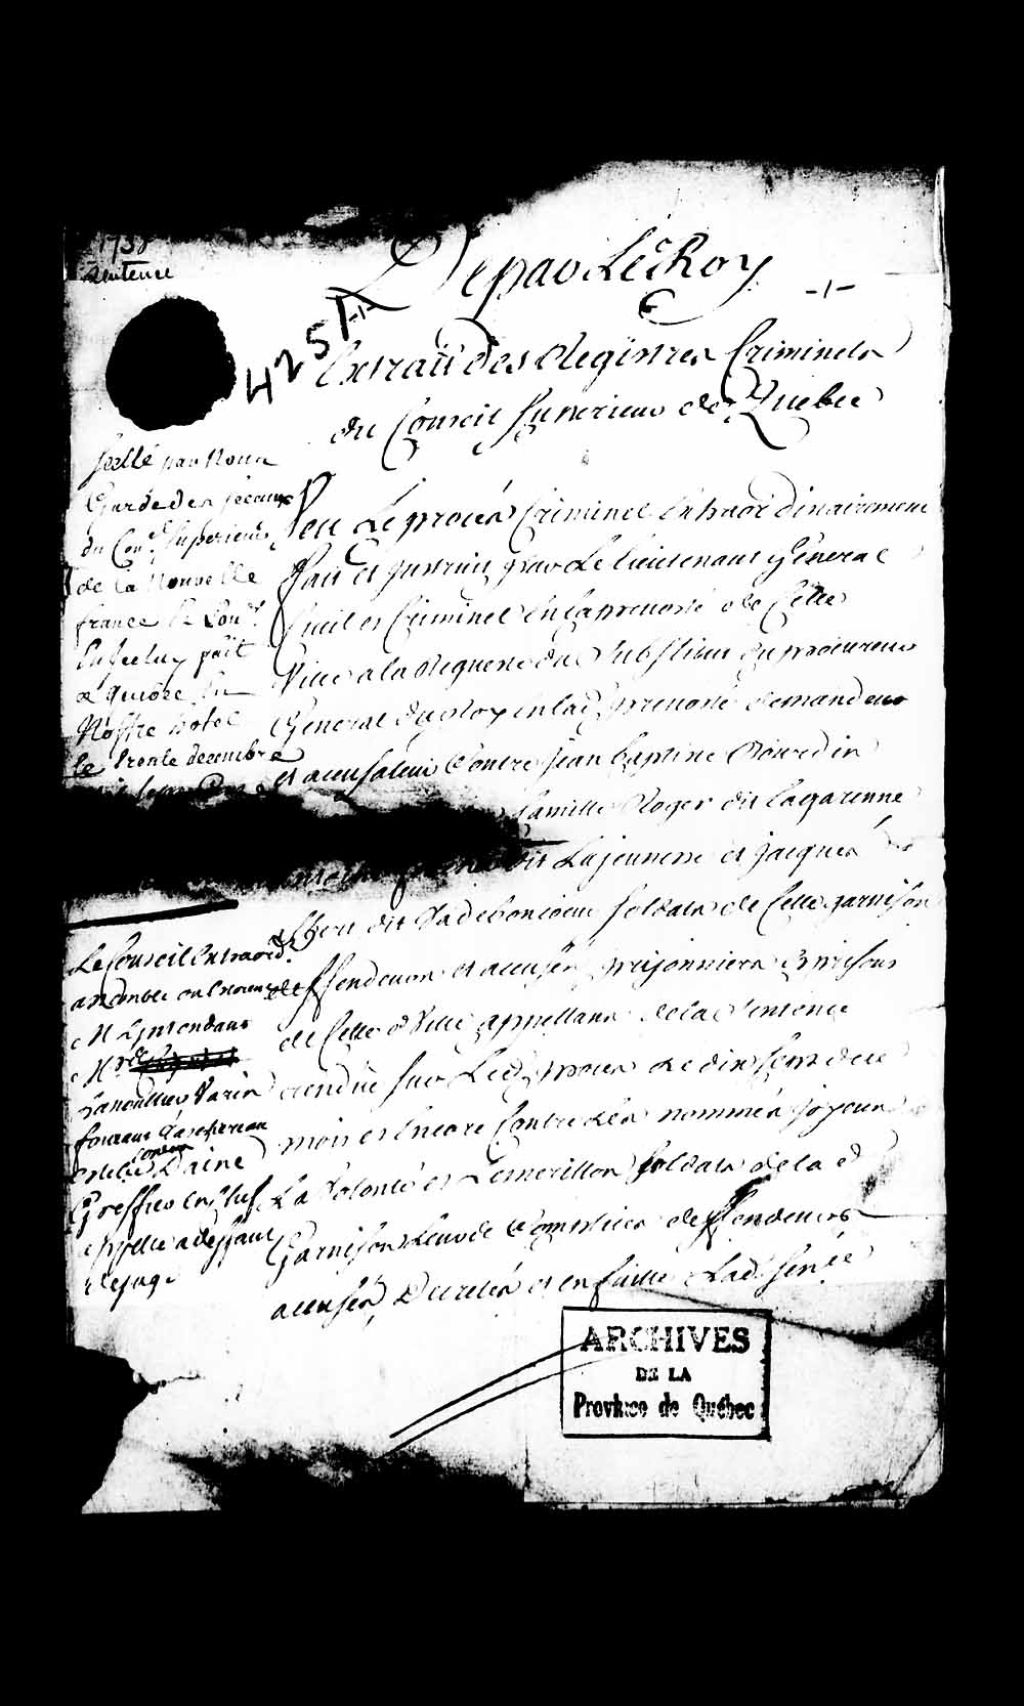 1738
Sentence
De par Le Roy
-1-
4251
-1-
Extrait des Registres Criminels
du Conseil Superieur de Quebec
Scellé par Nous
Garde des sceaux
du Con.el Superieur
de la Nouvelle
france
a Quebec En
Nostre hotel
le trente decembre
Veu Le procés Criminel Extraordinairement
fait et Instruit par Le lieutenant General
Civil et Criminel En la prevosté de Cette
Ville a la Requeste du Substitut du procureur
General du Roy en lad. prevosté demandeur
et accusateur Contre Jean baptiste
Camille Roger dit Lagarenne
dit Lajeunesse et Jacques
dit Vadeboncoeur soldats de Cette garnison
deffendeurs et accusés prisonniers Es prisons
de Cette d. Ville appellans de la Sentence
rendüe sur Led. procés Le dix sept du d.
mois et Encore Contre Les nommés Joyeux
La Volonté et Lemerillon soldats de la d.
Garnison Leurs Complices deffendeurs
accusés Decretés et en fuitte Lad. Sen.ce
Le Conseil Extraord.
assemblé ou Etoient
M. L'Intendant
Mrs
Lanoullier Varin
foucault Guillimin
Daine
Greffier En Chef
appellé a deffaut
de juge
ARCHIVES
DE LA
Province de Québec